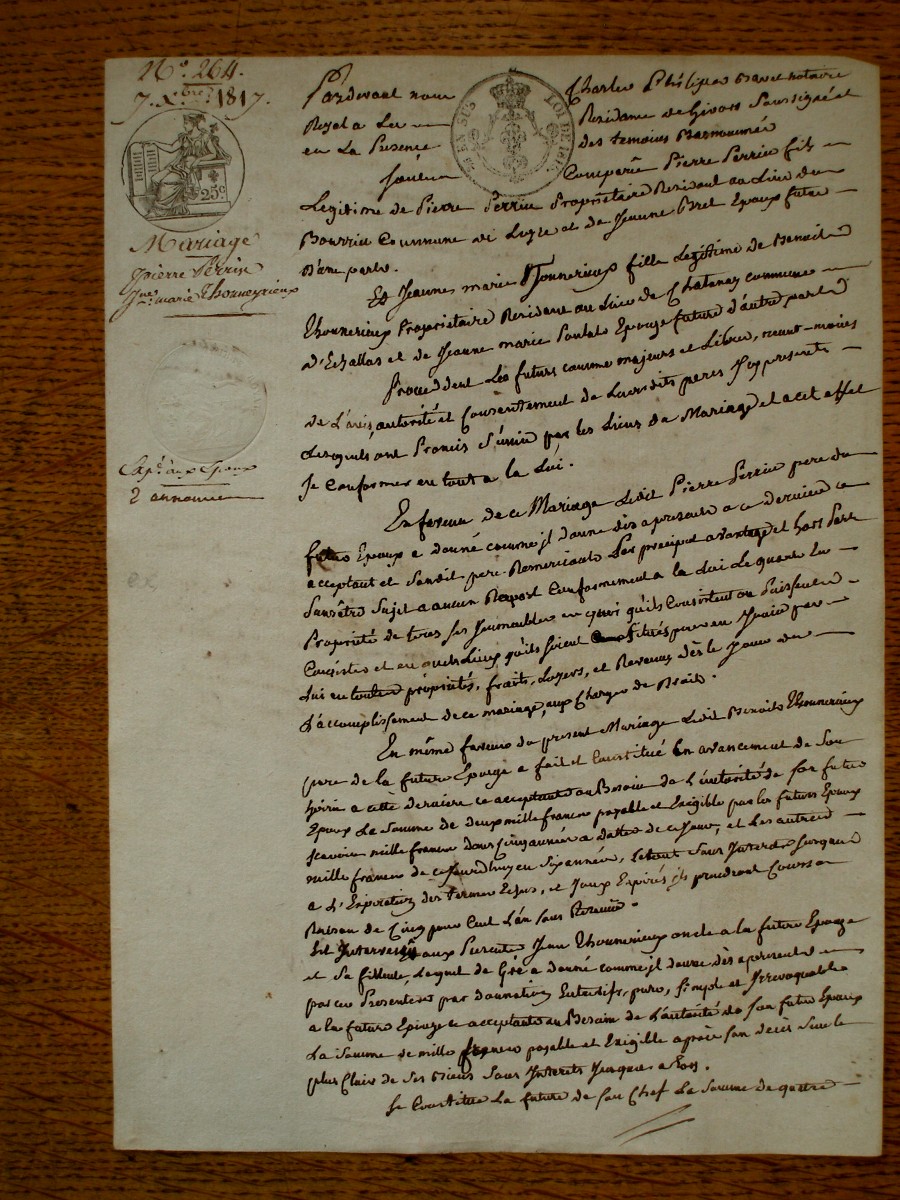 No. 264.
7. Xbre. 1817.
25c.
EN SUS
LOI DE 1816
Mariage
pierre Perrin
Jne. marie Thonnerieux
Expn. aux Epoux
2 annonces
Pardevant nous Charles Philipes Bavet notaire
Royal a La Residance de Givors Soussigné et
en La Presence des temoins Basnommés
furent Comparû Pierre Perrin fils
Legitime de Pierre Perrin Propriétaire Residant au Lieu du
Bourrin Commune de Luzre et de Jeanne Biset Epoux futur
D'une part.
Et Jeanne marie Thonnerieux fille Legitime de Benoit
Thonnerieux Propriétaire Residant au Lieu de Chatenay commune
d'Echallas et de Jeanne marie Poulat Epouze future d'autre part
Procedent Les futurs comme majeurs et Libres, neant-moins
de L'avis, autorité et Consentement de Leursdits peres Icy presents
Lesquels ont Promis S'unir par les Liens du Mariage et a cet effet
Se Conformer en tout a la Loi.
En faveur de ce Mariage Ledit Pierre Perrin pere du
futur Epoux a donné comme il donne dès apresent a ce dernier ce
acceptant et Sondit pere Remerciant Par preciput avantage et hors Part
Sans être Sujet a aucun Raport Conformement a la Loi Le quart En
Propriété de tous ses Immeubles en quoi qu'ils Consistent ou Puissent
Consister et en quels Lieux qu'ils soient Situés pour en Jouir par
Lui en toutes propriétés, fruits, Loyers, et Revenus dès le Jour de
L'accomplissement de ce mariage, aux Charges de Droit.
En même faveur du present Mariage Ledit Benoit Thonnerieux
pere de la future Epouze a fait et Constitué En avancement de Son
hoirie a cette derniere ce acceptante au Besoin de L'autorité de son futur
Epoux La Somme de deux mille francs payable et Exigible par les futurs Epoux
Scavoir mille francs dans Cinq années a datter de ce Jour, et Les autres
mille francs de ce Jourdhuy en Six années, Le tout Sans Interets Jusques
a L'Expiration des termes Echus, et Iceux Expirés ils prendront Cours a
Raison de Cinq pour Cent L'an sans Retenue.
Est Intervenû aux Presentes Jean Thonnerieux oncle a la future Epouze
et Sa filleule, Lequel de Gré a donné comme il donne dès apresent
par ces Presentes par donnation Entrevifs, pure, simple et Irrevoquable
a la future Epouze ce acceptante au Besoin de L'autorité de son futur Epoux
La Somme de mille francs payable et Exigible après son decès Sur le
plus Clair de Ses Biens Sans Interets Jusques a Lors.
Se Constitue La future de Son Chef La Somme de quatre